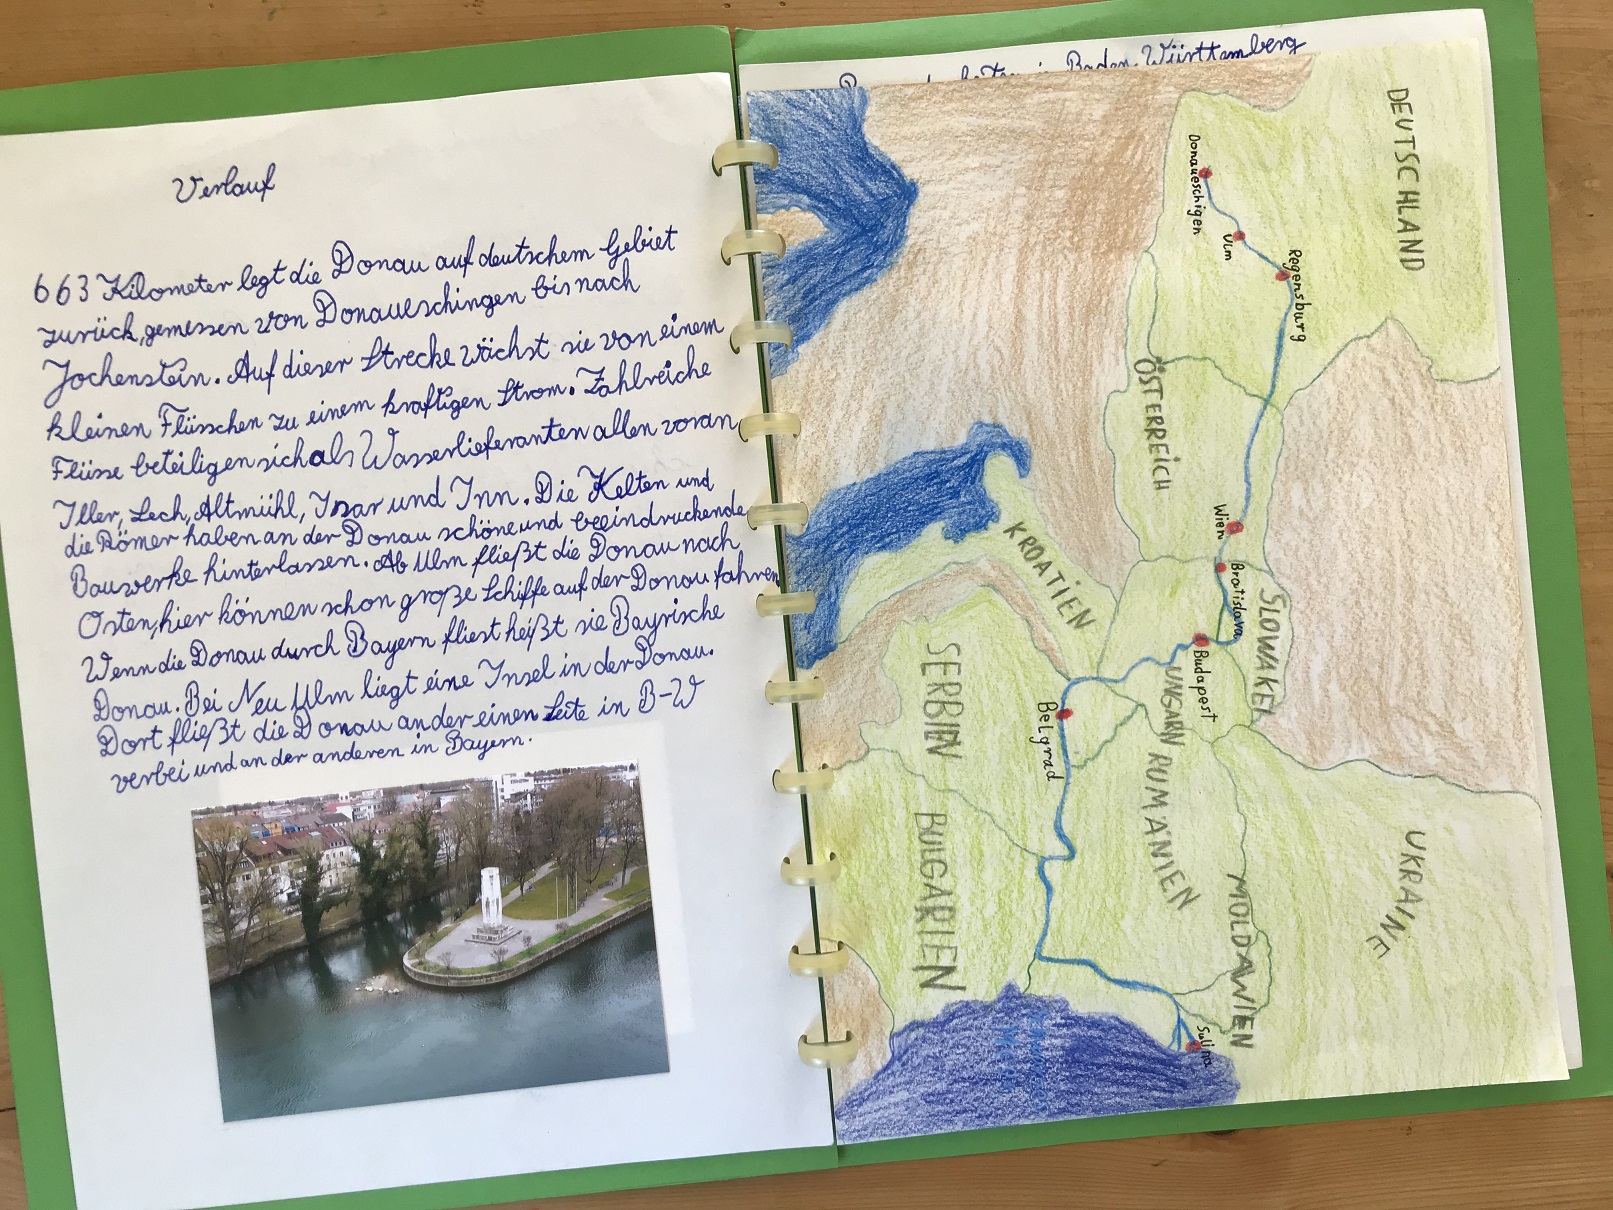 Verlauf
663 Kilometer legt die Donau auf deutschem Gebiet
zurück, gemessen von Donaueschingen bis nach
Jochenstein. Auf dieser Strecke wächst sie von einem
kleinen Flüsschen zu einem kraftigen Strom. Zahlreiche
Flüsse beteiligen sich als Wasserlieferanten allen voran
Iller, Lech, Altmühl, Isar und Inn. Die Kelten und
die Römer haben an der Donau schöne und beeindruckende
Bauwerke hinterlassen. Ab Ulm fließt die Donau nach
Osten, hier können schon große Schiffe auf der Donau fahren
Wenn die Donau durch Bayern fliest heißt sie Bayrische
Donau. Bei Neu Ulm liegt eine Insel in der Donau.
Dort fließt die Donau an der einen Seite in B-W
verbei und an der anderen in Bayern.
in Baden-Württemberg
DEUTSCHLAND
Donaueschigen
Ulm
Regensburg
ÖSTERREICH
Wien
Bratislava
SLOWAKEI
KROATIEN
Budapest
UNGARN
SERBIEN
Belgrad
RUMÄNIEN
BULGARIEN
MOLDAWIEN
UKRAINE
Sulina